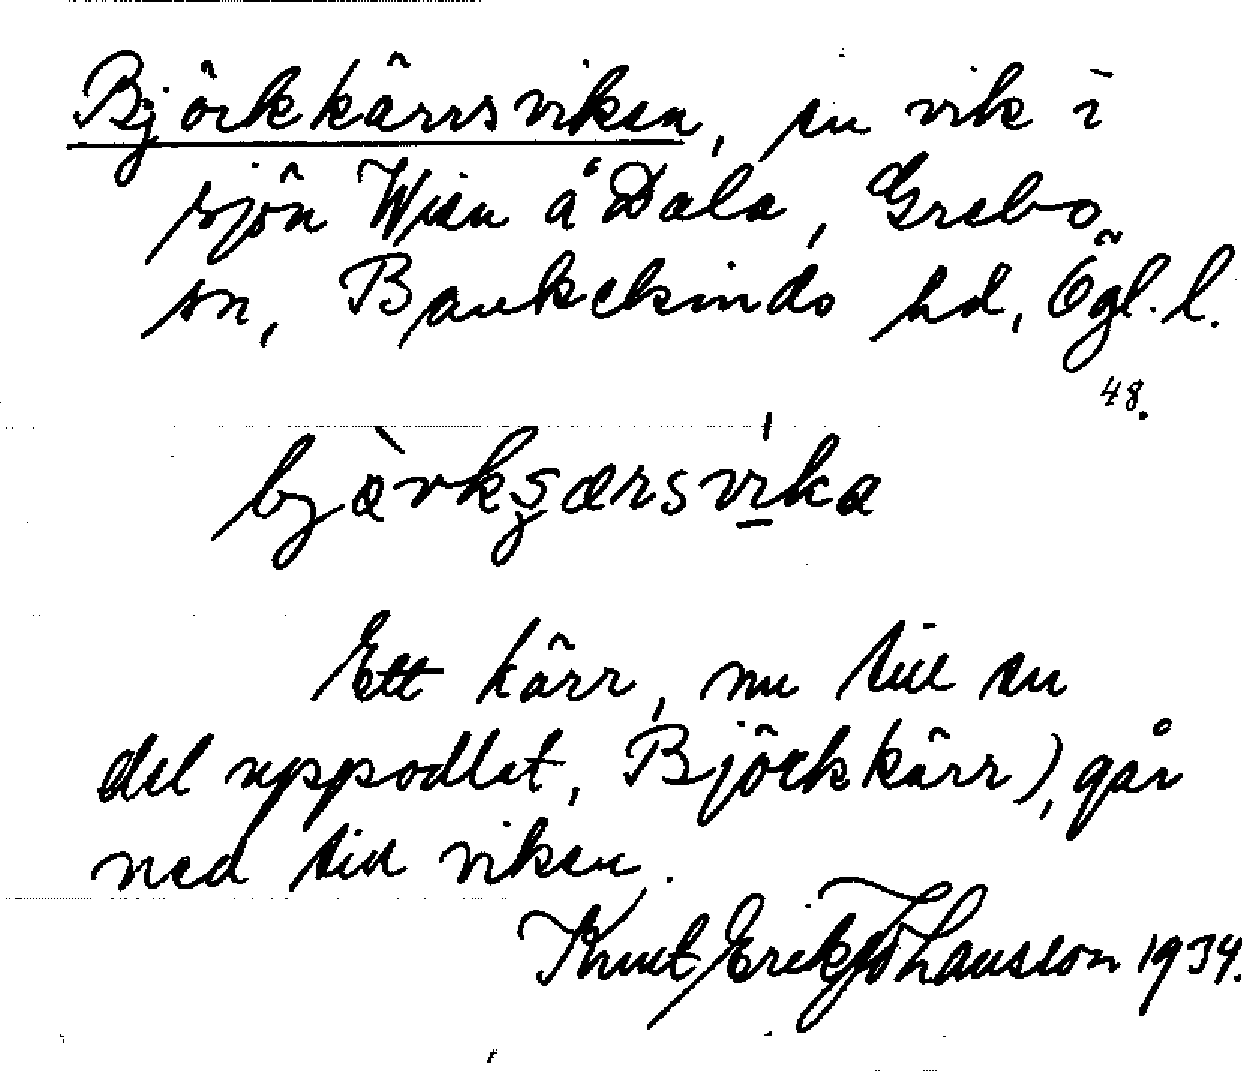 Björkkärrsviken, en vik i
sjön Wien å Dala, Grebo
sn, Bankekinds hd, Ögl. l.
48.
Ett kärr, nu till en
del uppodlat, Björkkärr), går
ned till viken.
Knut Erik Johansson 1934.